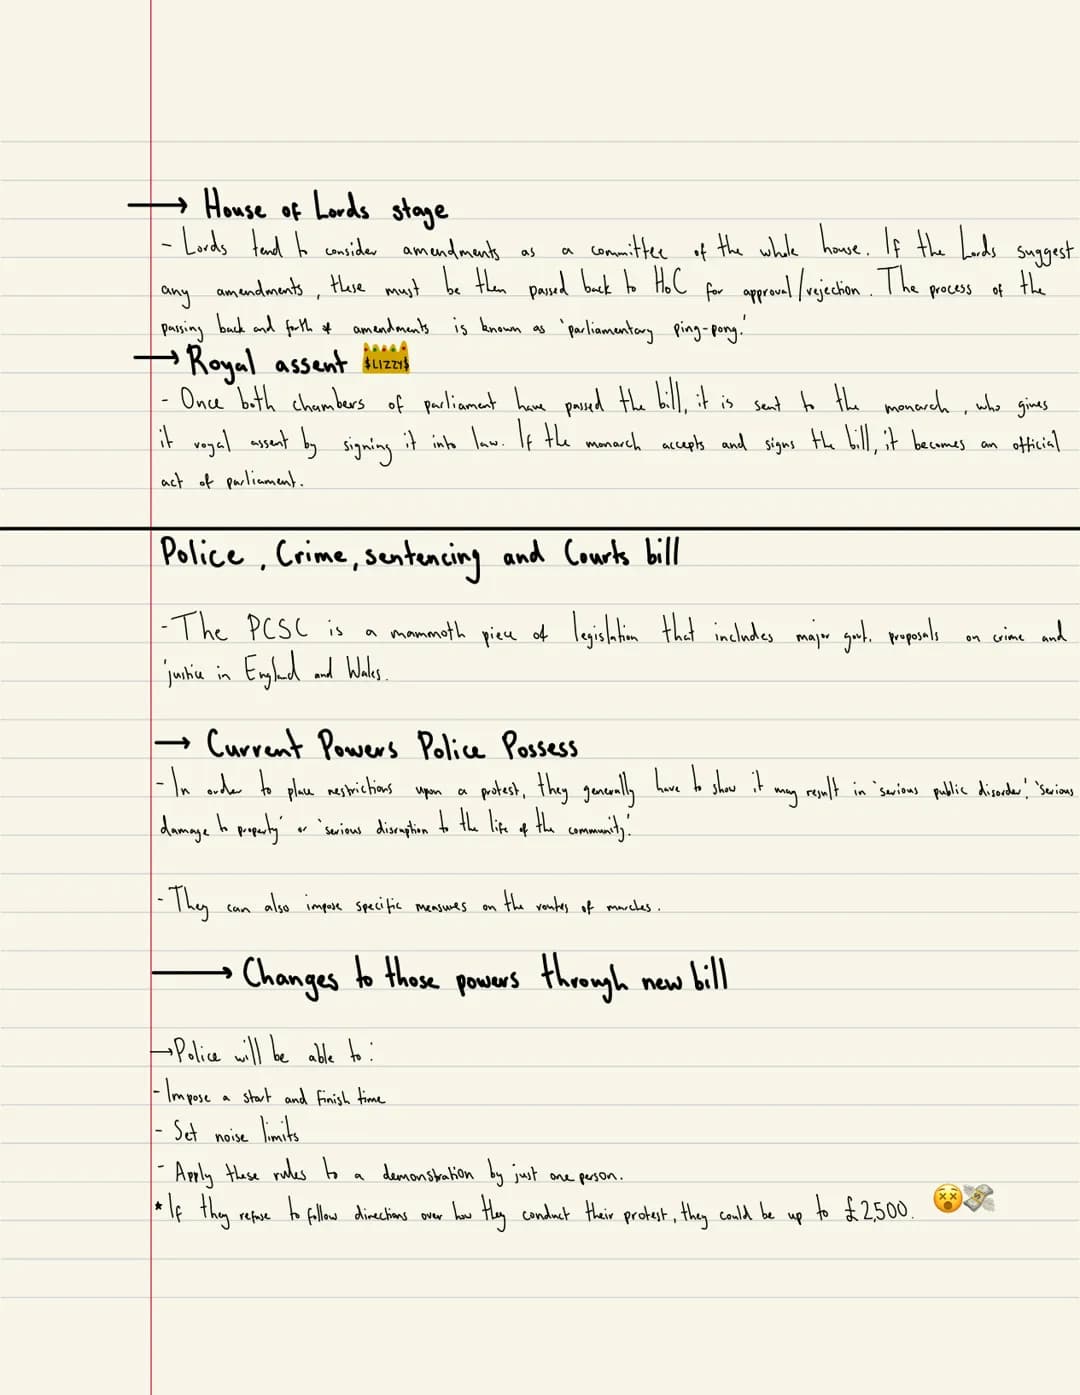 → House of Lords stage
- Lords tend to consider amendments as a committee of the whole house. If the Lords suggest
any amendments, these must be then passed back to HoC for approval/rejection. The process of the
passing back and forth of amendments is known as 'parliamentary ping-pong.'
→ Royal assent $LIZZY$
- Once both chambers of parliament have passed the bill, it is sent to the monarch, who gives
it royal assent by signing it into law. If the monarch accepts and signs the bill, it becomes an official
act of parliament.
Police, Crime, sentencing and Courts bill
- The PCSC is a mammoth piece of legislation that includes major govt. proposals on crime and
justice in England and Wales.
→ Current Powers Police Possess
- In order to place restrictions upon a protest, they generally have to show it may result in 'serious public disorder', 'serious
damage to property' or 'serious disruption to the life of the community.'
- They can also impose specific measures on the routes of marches.
→ Changes to those powers through new bill
→ Police will be able to:
- Impose a start and finish time
- Set noise limits
- Apply these rules to a demonstration by just one person.
* If they refuse to follow directions over how they conduct their protest, they could be up to £2,500. 😵💸